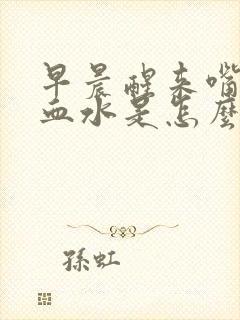 早晨醒来嘴
血水是怎麼
孫虹